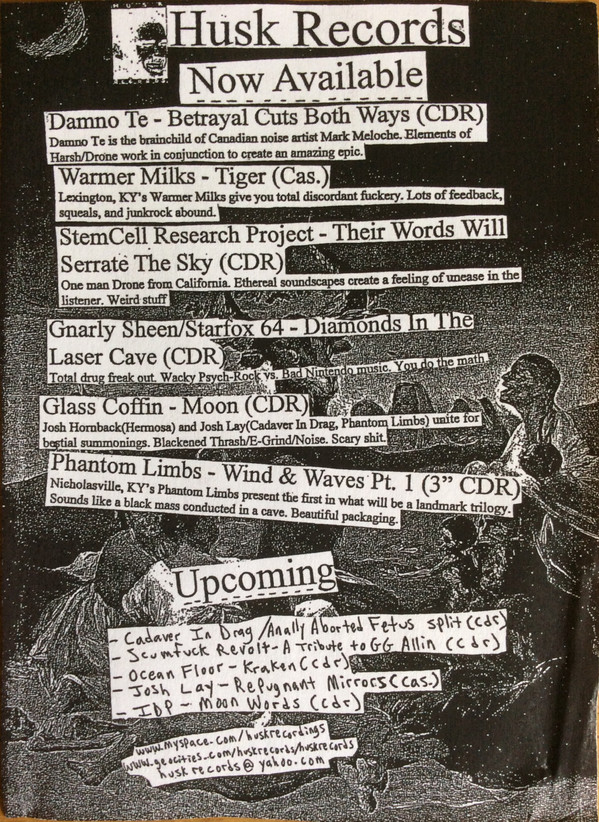 HUSK
Husk Records
Now Available
Damno Te - Betrayal Cuts Both Ways (CDR)
Damno Te is the brainchild of Canadian noise artist Mark Meloche. Elements of
Harsh/Drone work in conjunction to create an amazing epic.
Warmer Milks - Tiger (Cas.)
Lexington, KY's Warmer Milks give you total discordant fuckery. Lots of feedback,
squeals, and junkrock abound.
StemCell Research Project - Their Words Will
Serrate The Sky (CDR)
One man Drone from California. Ethereal soundscapes create a feeling of unease in the
listener. Weird stuff
Gnarly Sheen/Starfox 64 - Diamonds In The
Laser Cave (CDR)
Total drug freak out. Wacky Psych-Rock vs. Bad Nintendo music. You do the math
Glass Coffin - Moon (CDR)
Josh Hornback(Hermosa) and Josh Lay(Cadaver In Drag, Phantom Limbs) unite for
bestial summonings. Blackened Thrash/E-Grind/Noise. Scary shit.
Phantom Limbs - Wind & Waves Pt. 1 (3” CDR)
Nicholasville, KY's Phantom Limbs present the first in what will be a landmark trilogy.
Sounds like a black mass conducted in a cave. Beautiful packaging.
Upcoming
- Cadaver In Drag/Anally Aborted Fetus split (cdr)
- Scumfuck Revolt - A Tribute to GG Allin (cdr)
- Ocean Floor - Kraken (cdr)
- Josh Lay - Repugnant Mirrors (cas.)
- IDP - Moon Words (cdr)
www.myspace.com/huskrecordings
www.geocities.com/huskrecords/huskrecords
huskrecords@yahoo.com